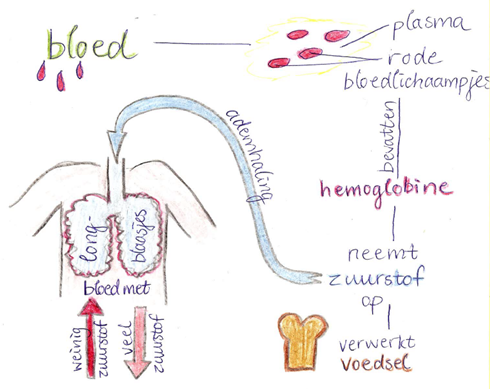 bloed
plasma
rode
bloedlichaampjes
bevatten
hemoglobine
neemt
zuurstof
op
verwerkt
voedsel
ademhaling
long-
blaasjes
bloed met
weinig
zuurstof
veel
zuurstof